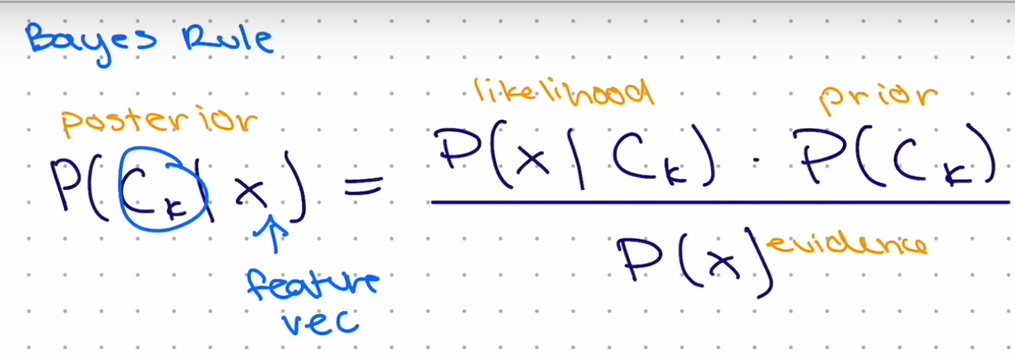 Bayes Rule
posterior
likelihood
prior
P(Ck|x) = P(x|Ck) · P(Ck)
P(x)
evidence
feature
vec